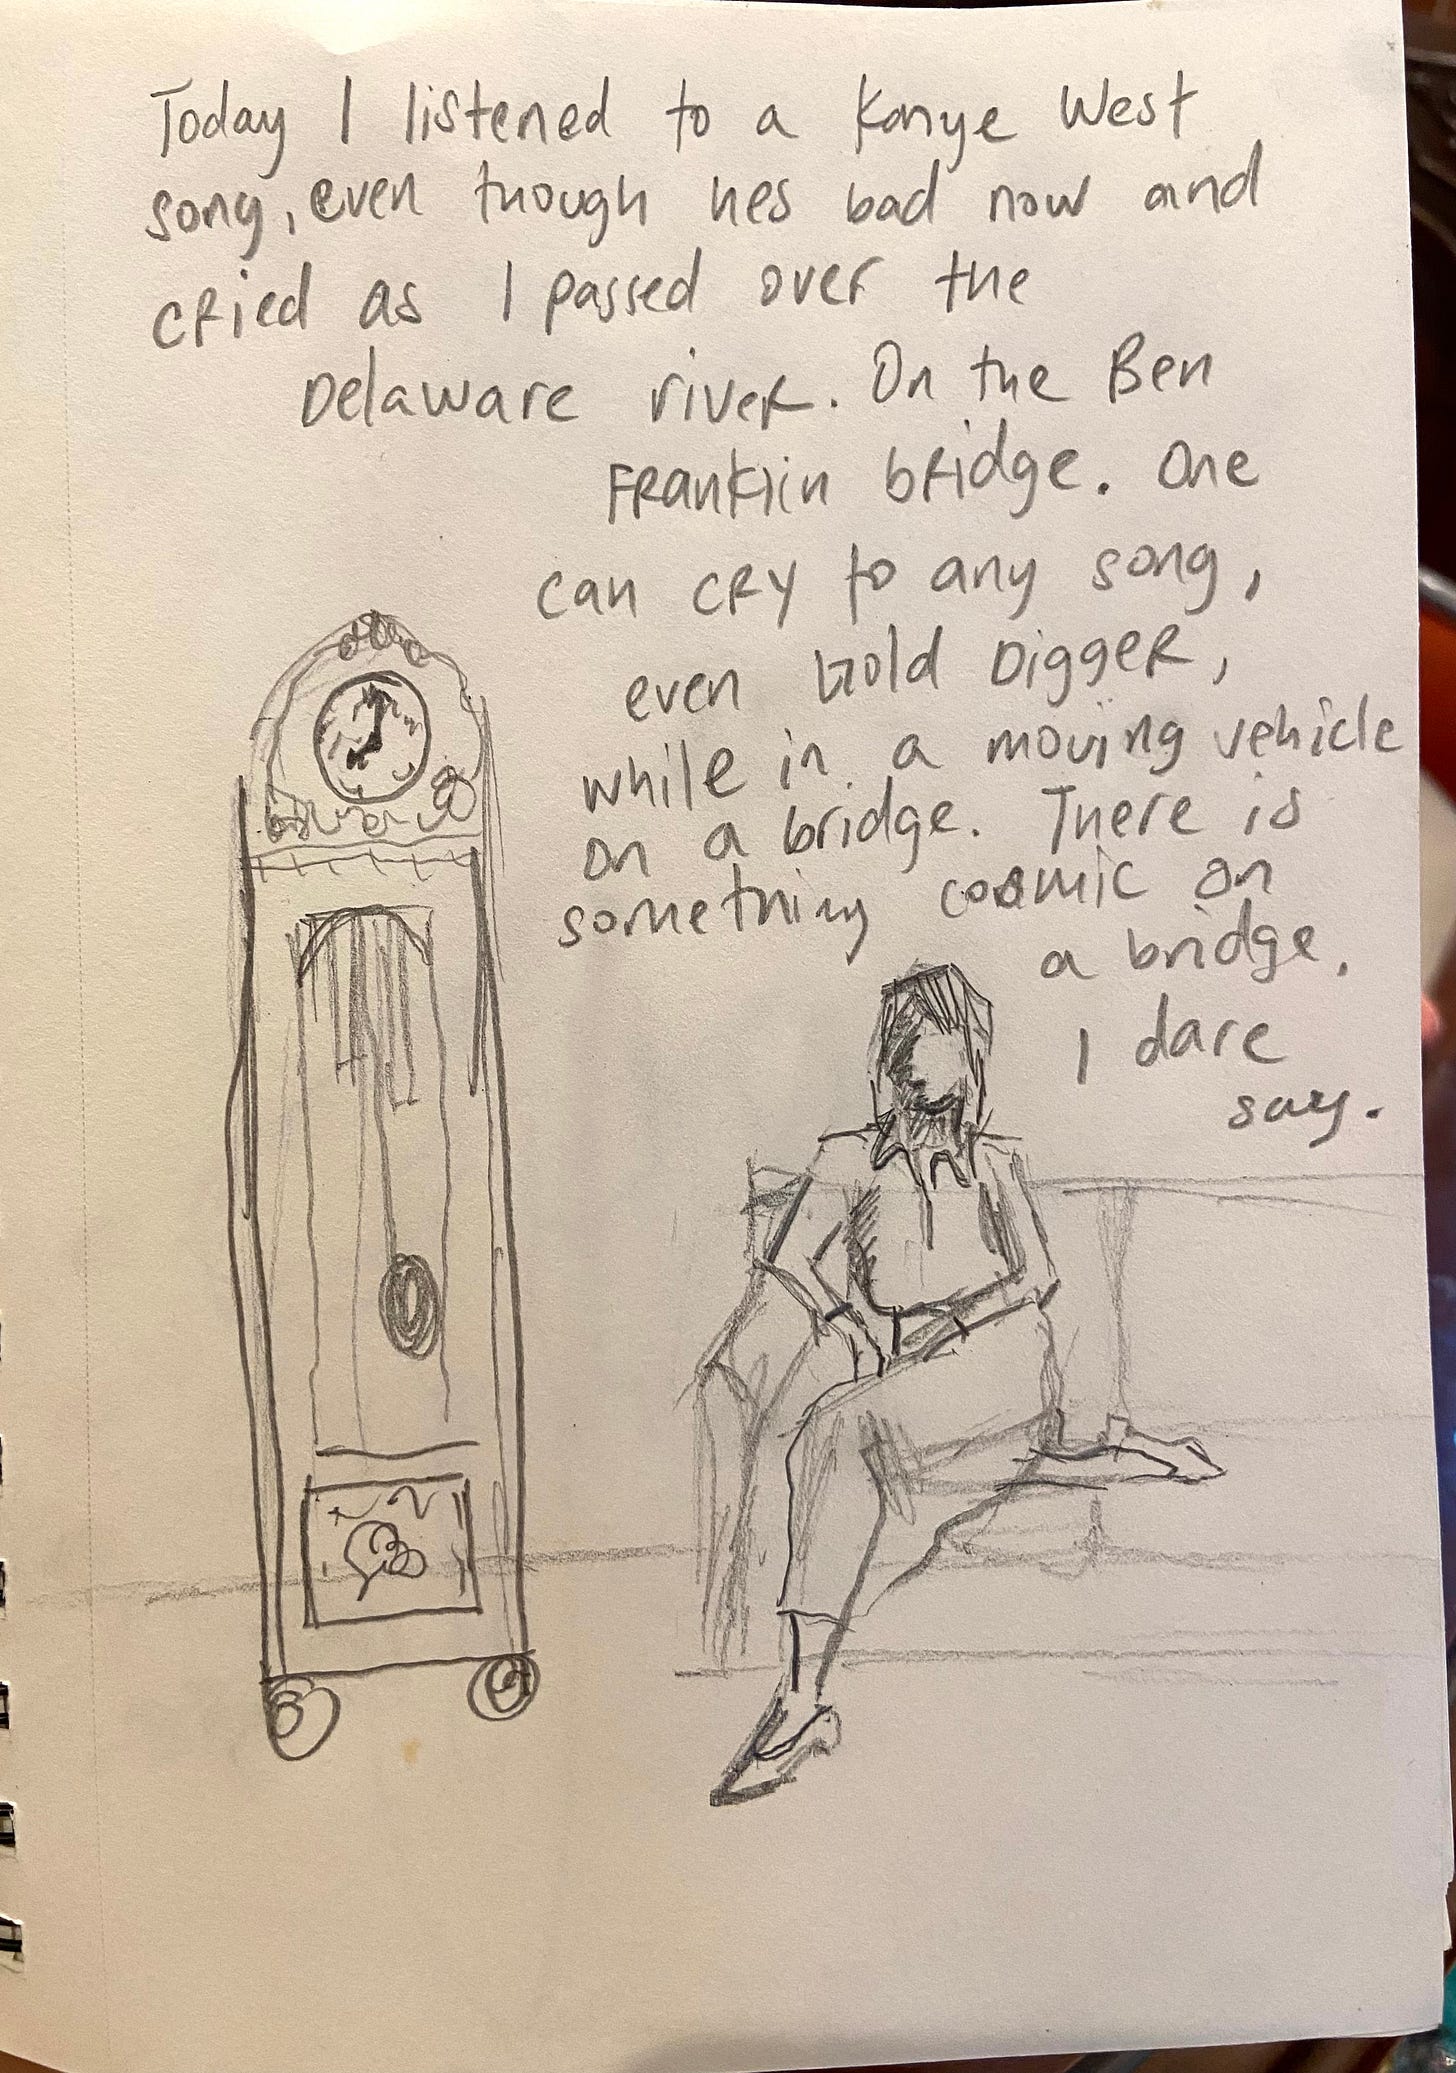 Today I listened to a Kanye West
song, even though hes bad now and
cried as I passed over the
Delaware river. On the Ben
Franklin bridge. One
can cry to any song,
even Gold Digger,
while in a moving vehicle
on a bridge. There is
something cosmic on
a bridge,
I dare
say.